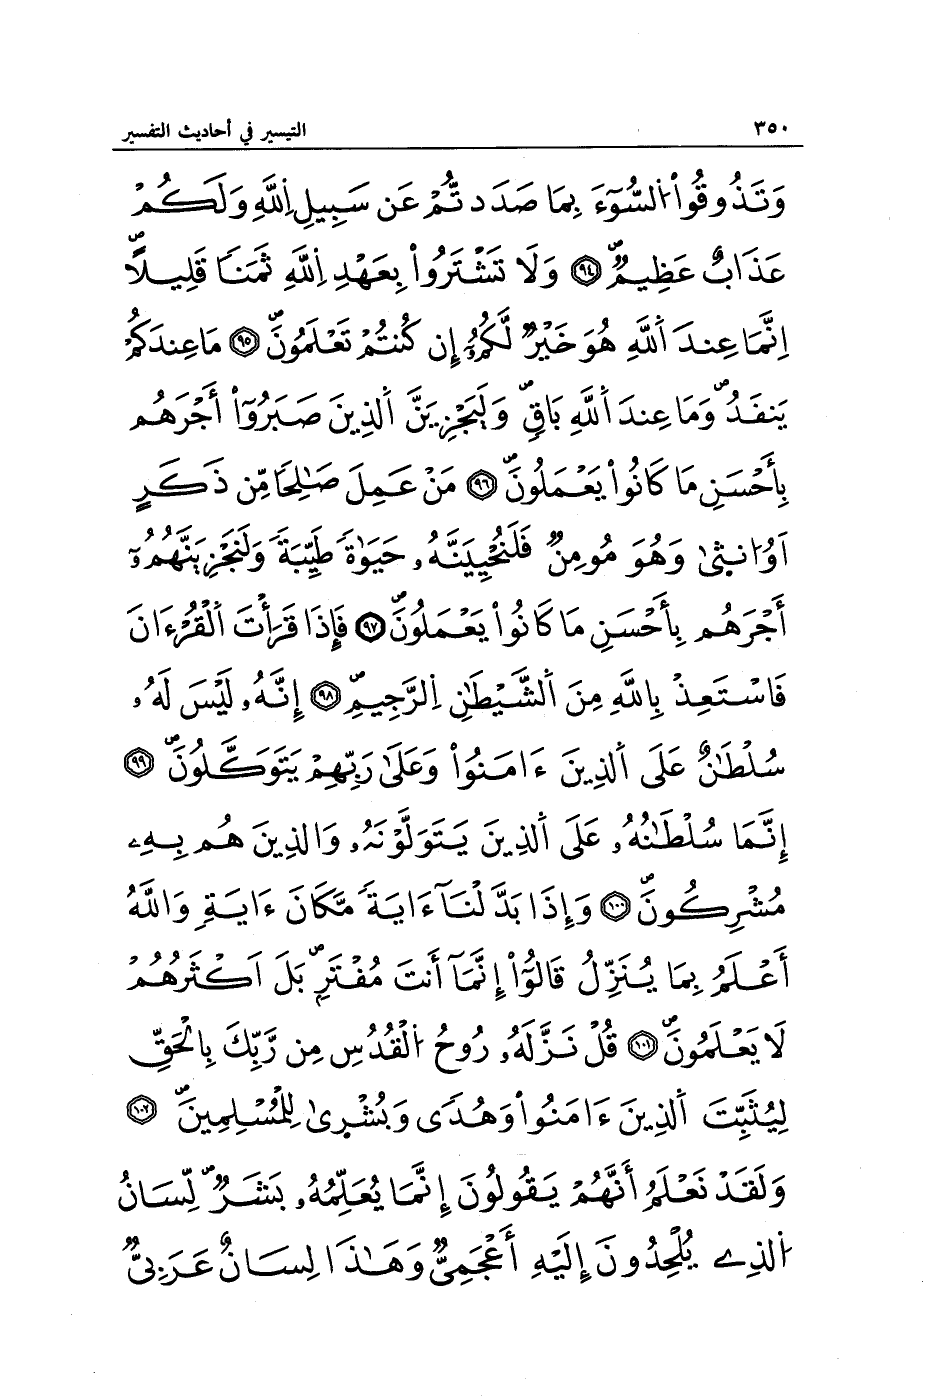 ٣٥٠ التيسير في أحاديث التفسير
وَتَذُوقُواْ اُلسُّوٓءَ بِمَا صَدَدتُّمْ عَن سَبِيلِ اِللَّهِ وَلَكُمْ
عَذَابٌ عَظِيمٌ ٩٤ وَلَا تَشْتَرُواْ بِعَهْدِ اِللَّهِ ثَمَناً قَلِيلاً
اِنَّمَا عِندَ اَللَّهِ هُوَ خَيْرٌ لَّكُمُۥٓ إِن كُنتُمْ تَعْلَمُونَ ٩٥ مَا عِندَكُمْ
يَنفَدُ وَمَا عِندَ اَللَّهِ بَاقٍ وَلَيَجْزِيَنَّ اَلذِينَ صَبَرُوٓاْ أَجْرَهُم
بِأَحْسَنِ مَا كَانُواْ يَعْمَلُونَ ٩٦ مَنْ عَمِلَ صَٰلِحاً مِّن ذَكَرٍ
اَوُ انثىٰ وَهُوَ مُومِنٌ فَلَنُحْيِيَنَّهُۥ حَيَوٰةً طَيِّبَةً وَلَنَجْزِيَنَّهُمُۥٓ
أَجْرَهُم بِأَحْسَنِ مَا كَانُواْ يَعْمَلُونَ ٩٧ فَإِذَا قَرَأْتَ اَلْقُرْءَانَ
فَاسْتَعِذْ بِاللَّهِ مِنَ اَلشَّيْطَٰنِ اِلرَّجِيمِ ٩٨ إِنَّهُۥ لَيْسَ لَهُۥ
سُلْطَٰنٌ عَلَى اَلذِينَ ءَامَنُواْ وَعَلَىٰ رَبِّهِمْ يَتَوَكَّلُونَ ٩٩
إِنَّمَا سُلْطَٰنُهُۥ عَلَى اَلذِينَ يَتَوَلَّوْنَهُۥ وَالذِينَ هُم بِهِۦ
مُشْرِكُونَ ١٠٠ وَإِذَا بَدَّلْنَآ ءَايَةً مَّكَانَ ءَايَةٍ وَاللَّهُ
أَعْلَمُ بِمَا يُنَزِّلُ قَالُوٓاْ إِنَّمَآ أَنتَ مُفْتَرٍ بَلَ اَكْثَرُهُمْ
لَا يَعْلَمُونَ ١٠١ قُلْ نَزَّلَهُۥ رُوحُ اُلْقُدُسِ مِن رَّبِّكَ بِالْحَقِّ
لِيُثَبِّتَ اَلذِينَ ءَامَنُواْ وَهُدىً وَبُشْرىٰ لِلْمُسْلِمِينَ ١٠٢
وَلَقَدْ نَعْلَمُ أَنَّهُمْ يَقُولُونَ إِنَّمَا يُعَلِّمُهُۥ بَشَرٌ لِّسَانُ
اُلذِے يُلْحِدُونَ إِلَيْهِ أَعْجَمِيٌّ وَهَٰذَا لِسَانٌ عَرَبِيٌّ